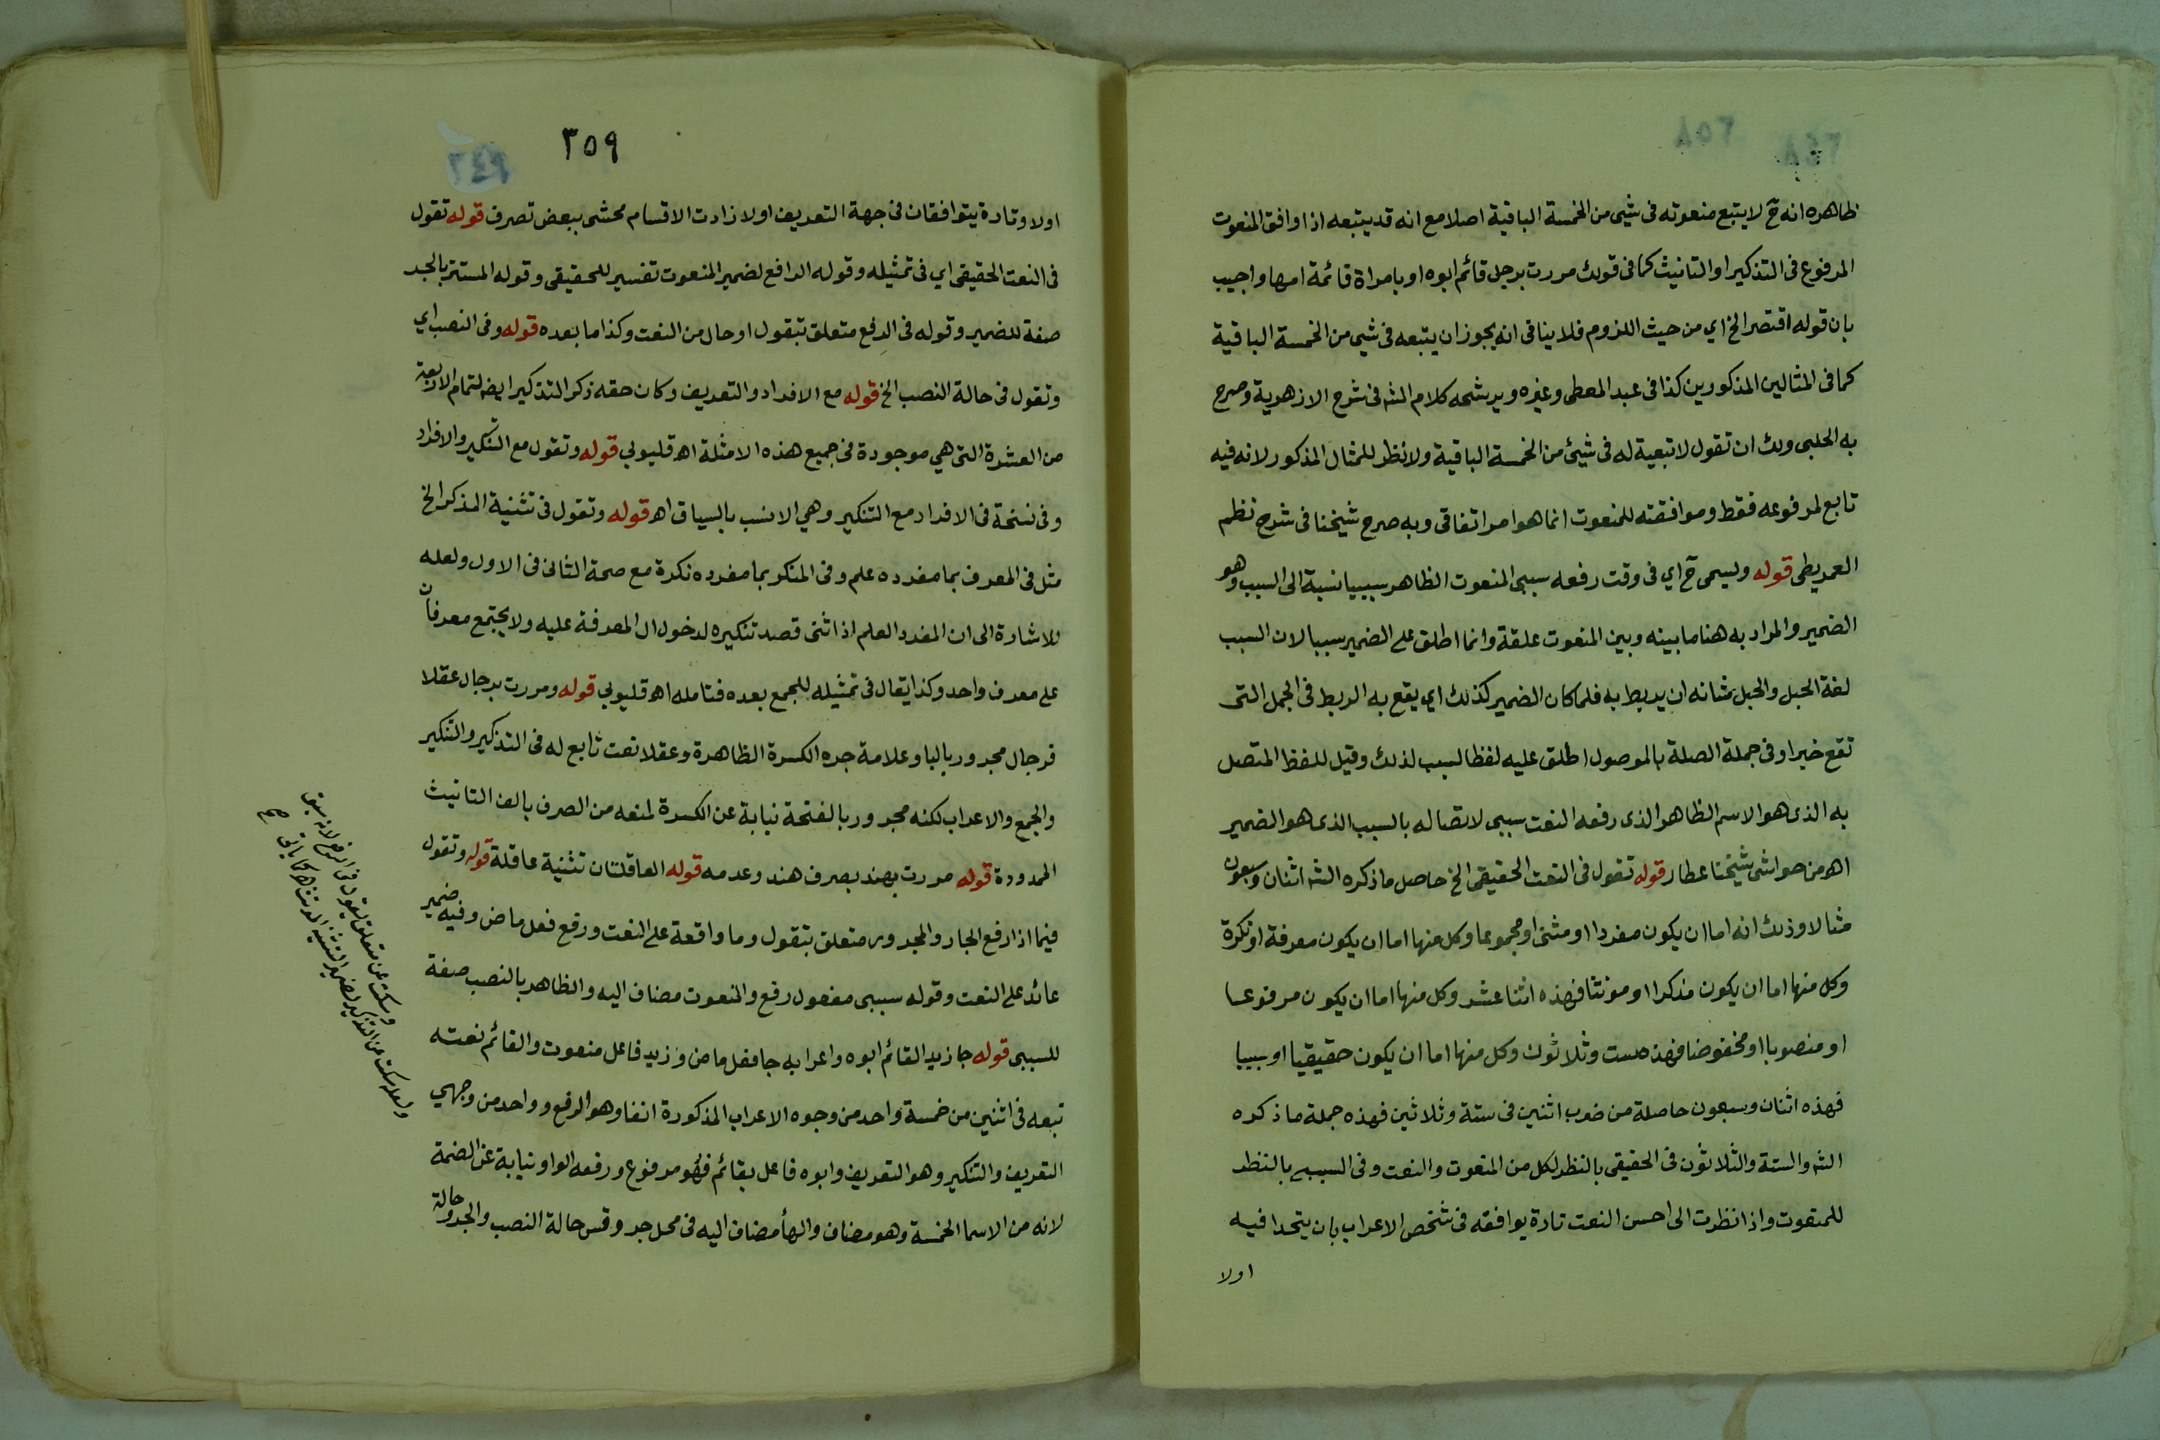 ظاهره انه ح لا يتبع منعوته فى شيى من الخمسة الباقية اصلا مع انه قد يتبعه اذا وافق المنعوت
المرفوع فى التذكير او التانيث كما فى قولك مررت برجل قائم ابوه او بامراة قائمة امها واجيب
بان قوله اقتصر الخ اي من حيث اللزوم فلا ينافى انه يجوز ان يتبعه فى شيى من الخمسة الباقية
كما فى المثالين المذكورين كذا فى عبد المعطى وغيره ويرشحه كلام الشه فى شرح الازهرية وصرح
به الحلبى ولك ان تقول لا تبعية له فى شيئ من الخمسة الباقية ولا نظر للمثال المذكور لانه فيه
تابع لمرفوعه فقط وموافقته للمنعوت انما هو امر اتفاقى وبه صرح شيخنا فى شرح نظم
العمريطى قوله ويسمى ح اي فى وقت رفعه سببى المنعوت الظاهر سببيا نسبة الى السبب وهو
الضمير والمراد به هنا ما بينه وبين المنعوت علقة وانما اطلق على الضمير سببا لان السبب
لغة الحبل والحبل شانه ان يربط به فلما كان الضمير كذلك اي يقع به الربط فى الجمل التى
تقع خبرا وفى جملة الصلة بالموصول اطلق عليه لفظ السبب لذلك وقيل للفظ المتصل
به الذى هو الاسم الظاهر الذى رفعه النعت سببى لاتصاله بالسبب الذى هو الضمير
اه من حواشى شيخنا عطار قوله تقول فى النعت الحقيقى الخ حاصل ما ذكره الشه اثنان وسبعون
مثالا وذلك انه اما ان يكون مفردا او مثنى او مجموعا وكل منها اما ان يكون معرفة او نكرة
وكل منها اما ان يكون مذكرا او مونثا فهذه اثنا عشر وكل منها اما ان يكون مرفوعا
او منصوبا او مخفوضا فهذه ست وثلاثون وكل منها اما ان يكون حقيقيا او سببيا
فهذه اثنان وسبعون حاصلة من ضرب اثنين فى ستة وثلاثين فهذه جملة ما ذكره
الشه والستة والثلاثون فى الحقيقى بالنظر لكل من المنعوت والنعت وفى السببى بالنظر
للمنعوت واذا نظرت الى احسن النعت تارة يوافقه فى شخص الاعراب بان يتحدا فيه
اولا
٣٥٩
٣٤٩
اولا وتارة يتوافقان فى جهة التعريف اولا زادت الاقسام محشى ببعض تصرف قوله تقول
فى النعت الحقيقى اي فى تمثيله وقوله الرافع لضمير المنعوت تفسير للحقيقى وقوله المستتر بالجر
صفة للضمير وقوله فى الرفع متعلق بتقول او حال من النعت وكذا ما بعده قوله وفى النصب اي
وتقول فى حالة النصب الخ قوله مع الافراد والتعريف وكان حقه ذكر التذكير ايضه لتمام الاربعة
من العشرة التى هي موجودة فى جميع هذه الامثلة اه قليوبي قوله وتقول مع التنكير والافراد
وفى نسخة فى الافراد مع التنكير وهي الانسب بالسياق اه قوله وتقول فى تثنية المذكر الخ
مثل فى المعرف بما مفرده علم وفى المنكر بما مفرده نكرة مع صحة الثانى فى الاول ولعله
للاشارة الى ان المفرد العلم اذا ثنى قصد تنكيره لدخول ال المعرفة عليه ولا يجتمع معرفان
على معرف واحد وكذا يقال فى تمثيله للجمع بعده فتامله اه قليوبي قوله ومررت برجال عقلا
فرجال مجرور بالبا وعلامة جره الكسرة الظاهرة وعقلا نعت تابع له فى التذكير والتنكير
والجمع والاعراب لكنه مجرور بالفتحة نيابة عن الكسرة لمنعه من الصرف بالف التانيث
الممدودة قوله مررت بهند بصرف هند وعدمه قوله العاقلتان تثنية عاقلة قوله وتقول
فيما اذا رفع الجار والمجرور متعلق بتقول وما واقعة على النعت ورفع فعل ماض وفيه ضمير
عائد على النعت وقوله سببى مفعول رفع والمنعوت مضاف اليه والظاهر بالنصب صفة
للسببى قوله جا زيد القائم ابوه واعرابه جا فعل ماض وزيد فاعل منعوت والقائم نعته
تبعه فى اثنين من خمسة واحد من وجوه الاعراب المذكورة انفا وهو الرفع وواحد من وجهي
التعريف والتنكير وهو التعريف وابوه فاعل بقائم فهو مرفوع ورفعه الواو نيابة عن الضمة
لانه من الاسما الخمسة وهو مضاف والهأ مضاف اليه فى محل جر وقس حالة النصب والجر وحالة
وسكت عن متعلق تقول فى الرفع لانه سبق
ولعله سكت عن التذكير